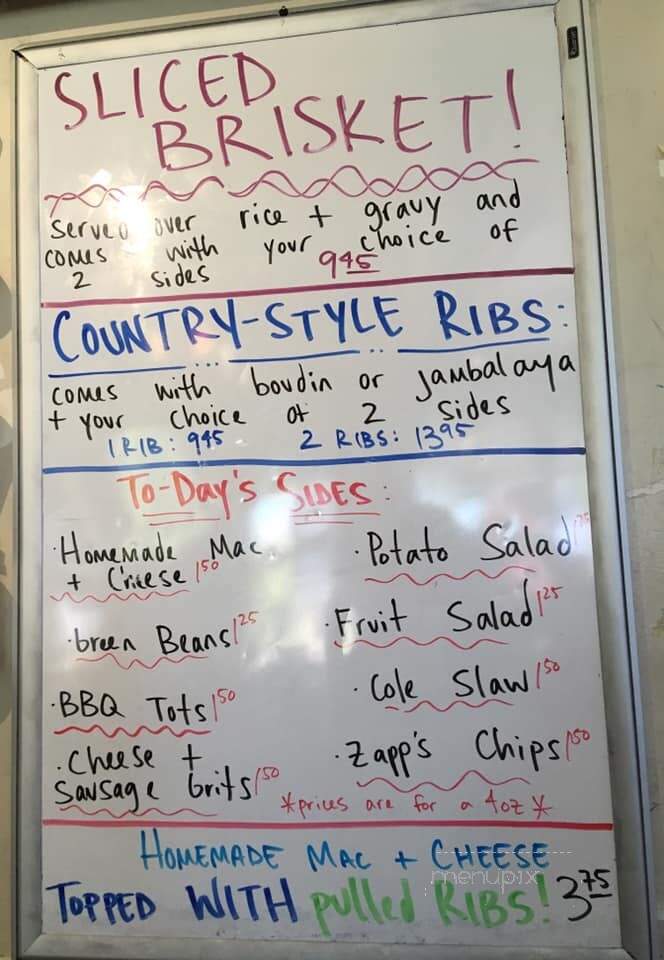 SLICED
BRISKET!
Served over rice + gravy and
comes with your choice of
2 sides 9 45
COUNTRY-STYLE RIBS:
comes with boudin or jambalaya
+ your choice of 2 sides
1 RIB: 9 45 2 RIBS: 13 95
TO-DAY'S SIDES:
·Homemade Mac
+ Cheese 1 50
·Potato Salad
·Green Beans 1 25
·Fruit Salad 1 25
·BBQ Tots 1 50
·Cole Slaw 1 50
·Cheese +
Sausage Grits 1 50
·Zapp's Chips 1 50
*prices are for a 4oz*
HOMEMADE MAC + CHEESE
TOPPED WITH pulled RIBS! 3 75
menupix